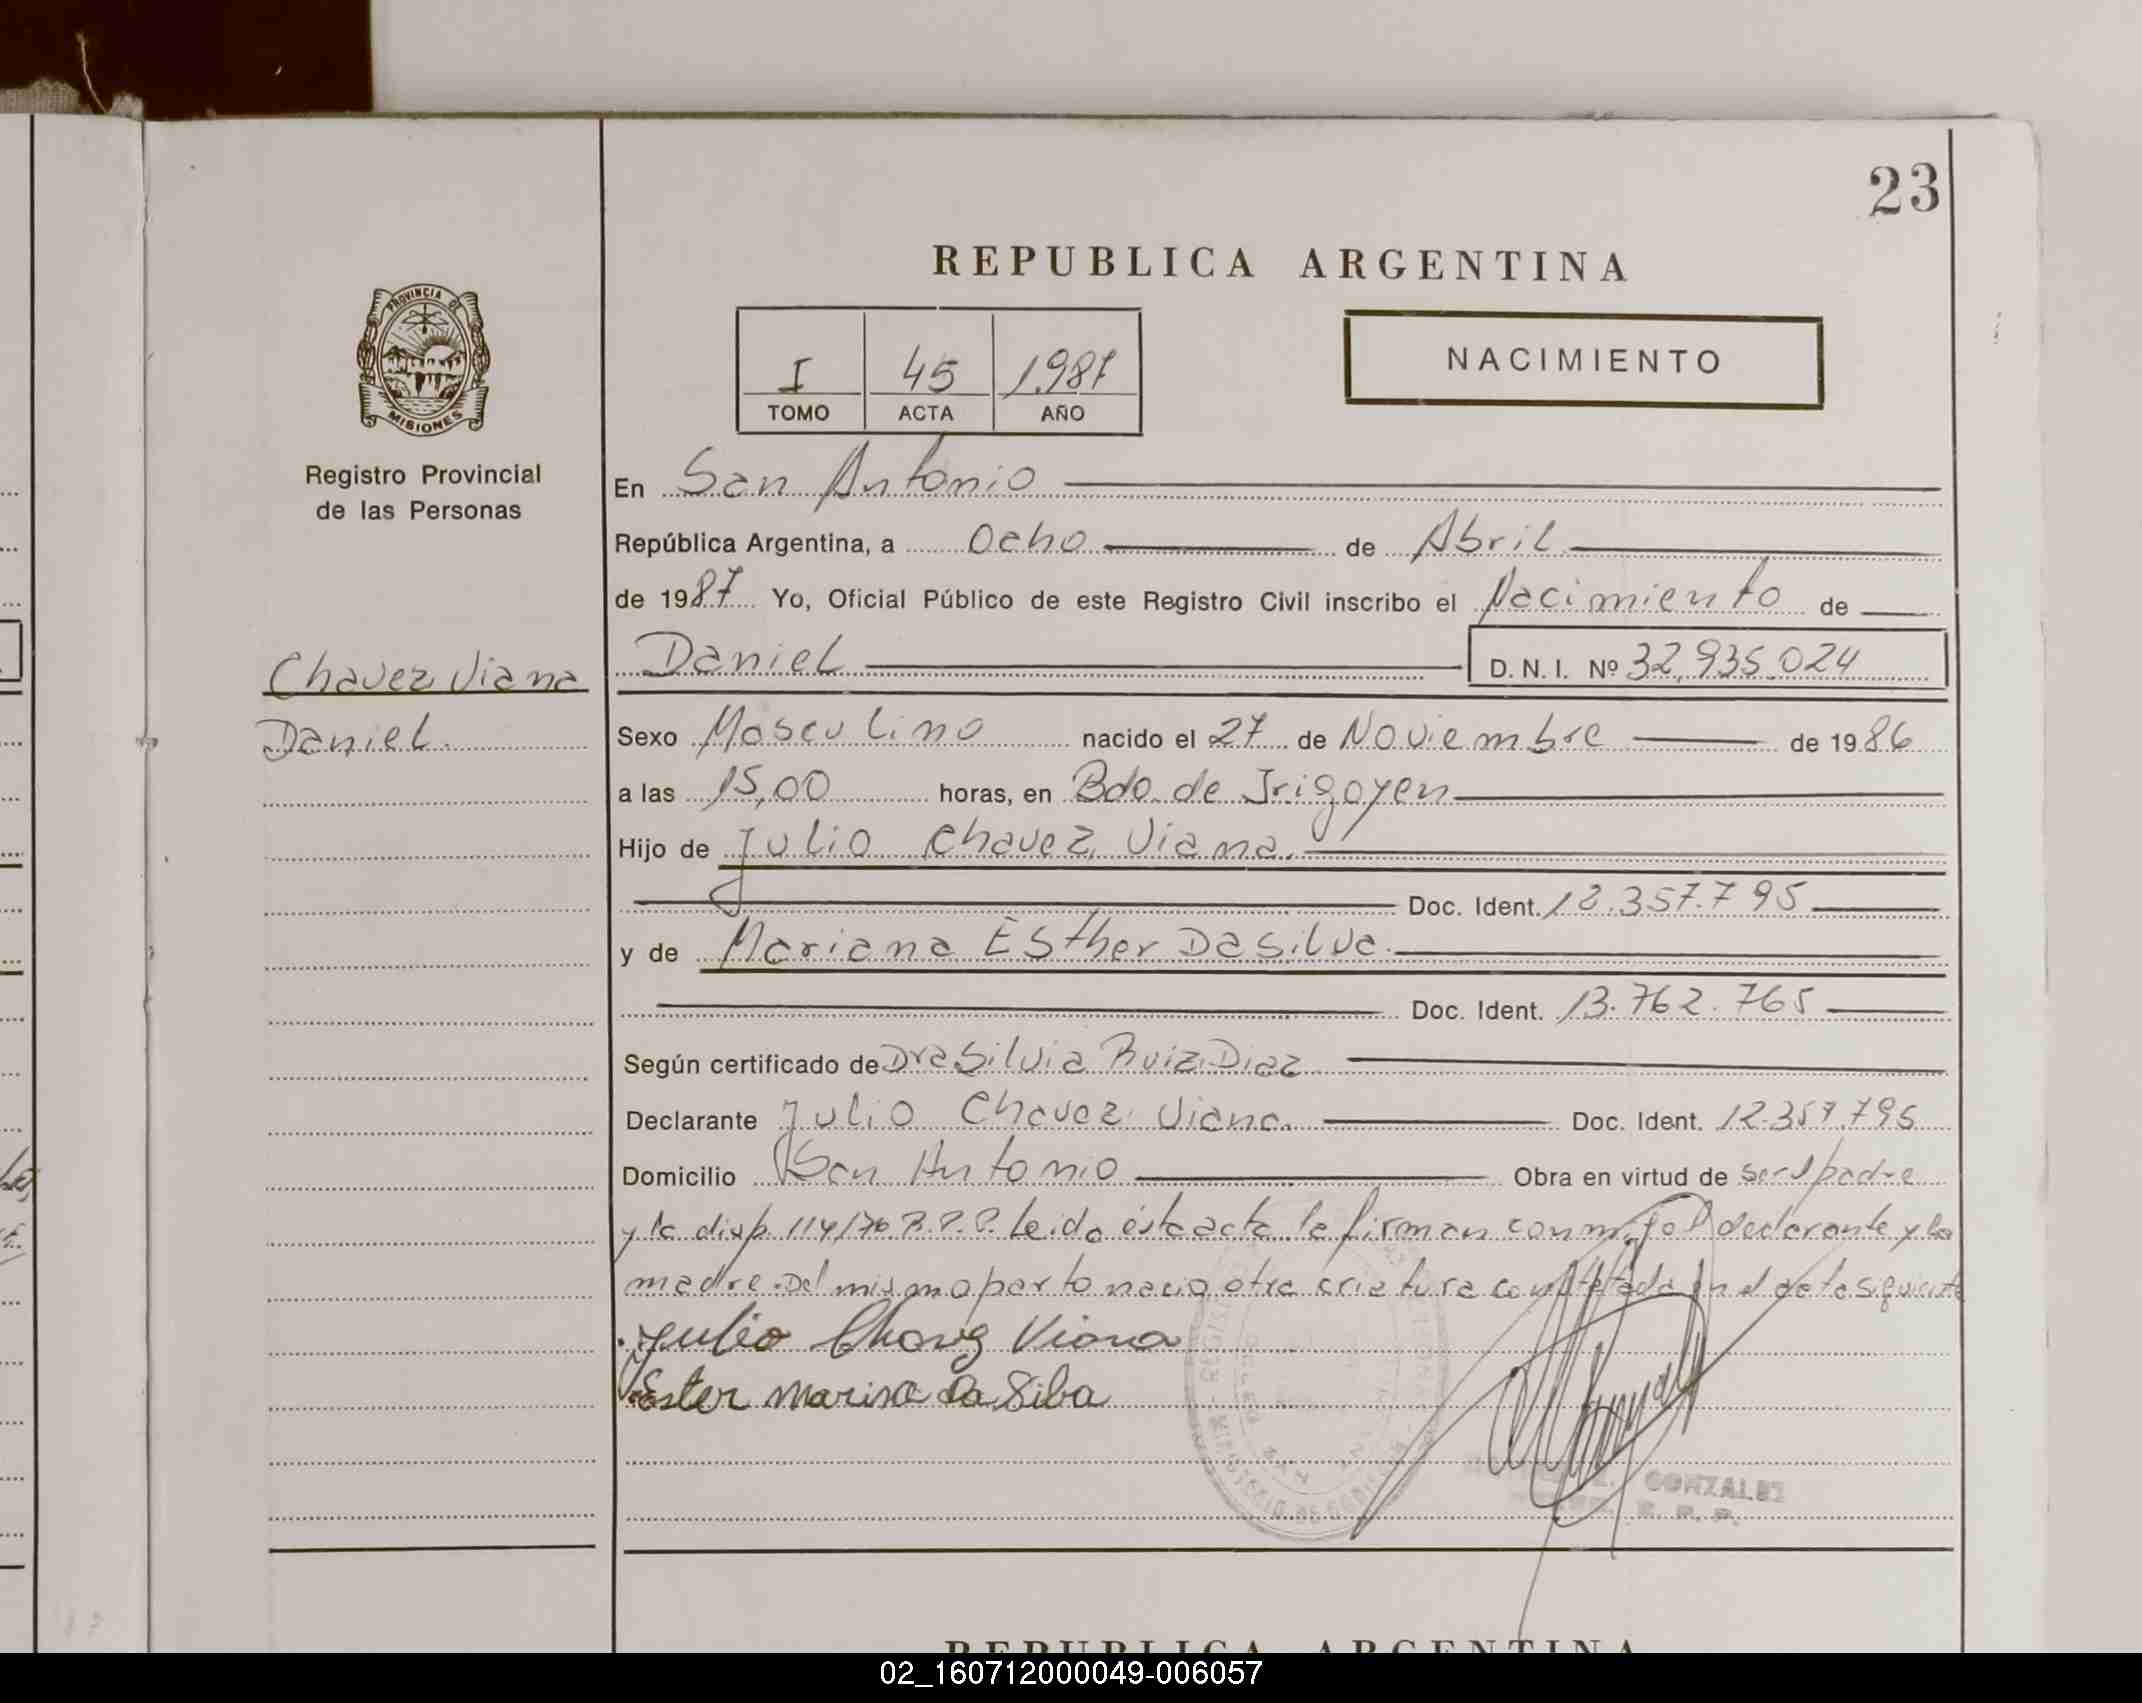 23
REPUBLICA ARGENTINA
I 45 1.987
TOMO ACTA AÑO
NACIMIENTO
PROVINCIA DE
MISIONES
Registro Provincial
de las Personas
En San Antonio
República Argentina, a Ocho de Abril
de 1987 Yo, Oficial Público de este Registro Civil inscribo el Nacimiento de
Chavez Viana
Daniel
Daniel D. N. I. Nº 32.935.024
Sexo Masculino nacido el 27 de Noviembre de 1986
a las 15,00 horas, en Bdo. de Irigoyen
Hijo de Julio Chavez Viana.
Doc. Ident. 12.357.795
y de Mariana Esther Da Silva.
Doc. Ident. 13.762.765
Según certificado de Dra Silvia Ruiz Diaz
Declarante Julio Chavez Viana. Doc. Ident. 12.357.795
Domicilio San Antonio Obra en virtud de ser el padre
y la disp. 114/76 R.P.P. Leida ésta acta la firman conmigo el declarante y la
madre. Del mismo parto nacio otra criatura en el acta siguiente
Julio Chavez Viana
Ester Marina Da Silva
GONZALEZ
R. P. P.
REPUBLICA ARGENTINA
02_160712000049-006057